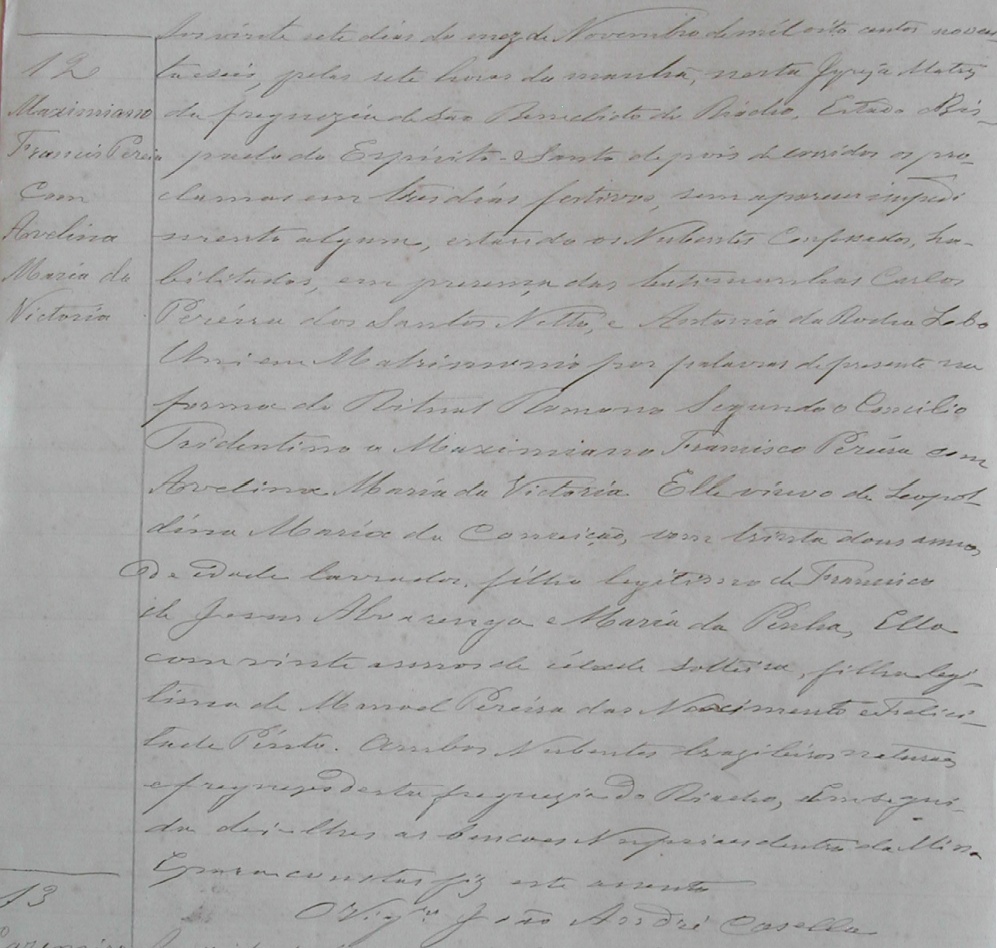 12
Maximiano
Francis Pereira
Com
Avelina
Maria da
Victoria
Aos vinte sete dias do mez de Novembro de mil oito centos noven
ta seis, pelas sete horas da manhã, nesta Igreja Matriz
da freguezia de São Benedicto do Riacho, Estado e Bis-
pado do Espirito-Santo depois de corridos os pro-
clamas em tres dias festivos, sem aparecer impedi
mento algum, estando os Nubentes Confessados, ha-
bilitados, em presença das testemunhas Carlos
Pereira dos Santos Netto, e Antonio da Rocha Lobo
Uni em Matrimonio por palavras de presente na
forma do Ritual Romano Segundo o Concilio
Tridentino a Maximiano Francisco Pereira com
Avelina Maria da Victoria. Elle viuvo de Leopol
dina Maria da Conceição, com trinta dous annos
de idade lavrador, filho legitimo de Francisco
de Jesus Alvarenga e Maria da Penha, Ella
com vinte annos de idade solteira, filha legi-
tima de Manoel Pereira das Nascimento e Felici-
tade Pinto. Ambos Nubentes brazileiros naturaes
e freguezes desta freguezia do Riacho, Em segui-
da dei-lhes as bencoes Nupciaes dentro da Missa
E para constar fiz este assento
O Vigr.º João André Casella
13